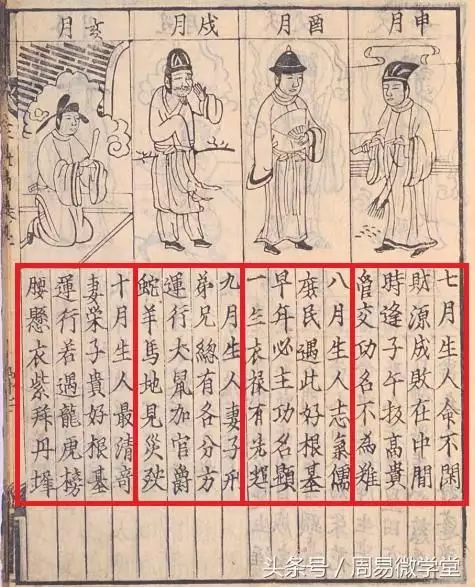 申月
酉月
戌月
亥月
七月生人命不閑
財源成敗在中間
時逢子午投高貴
管交功名不為難
八月生人志氣儒
庶民遇此好根基
早年必主功名顯
一衣祿有先
九月生人妻子刑
弟兄總有各分方
運行大鼠加官爵
蛇羊馬地見災殃
十月生人最清奇
妻榮子貴好根基
運行若遇龍虎榜
腰懸衣紫拜丹墀
头条号 / 周易微学堂